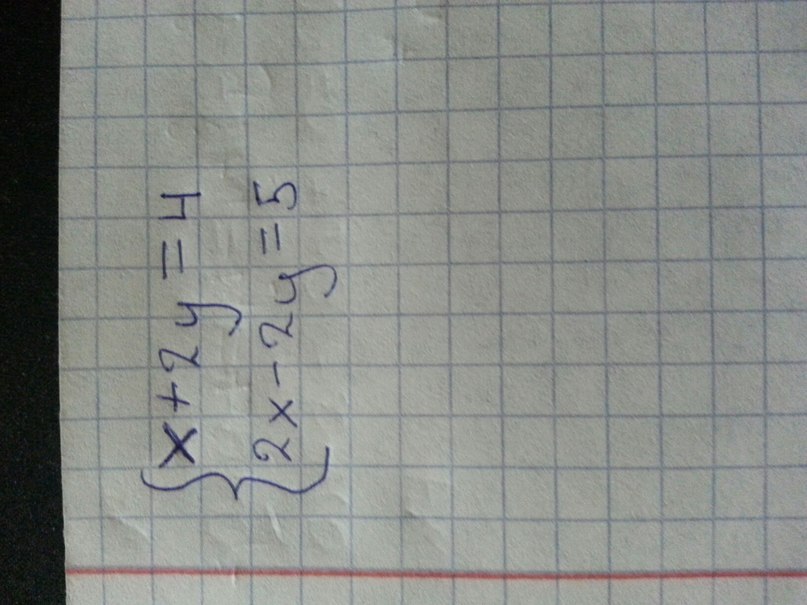 x+2y=4
2x-2y=5